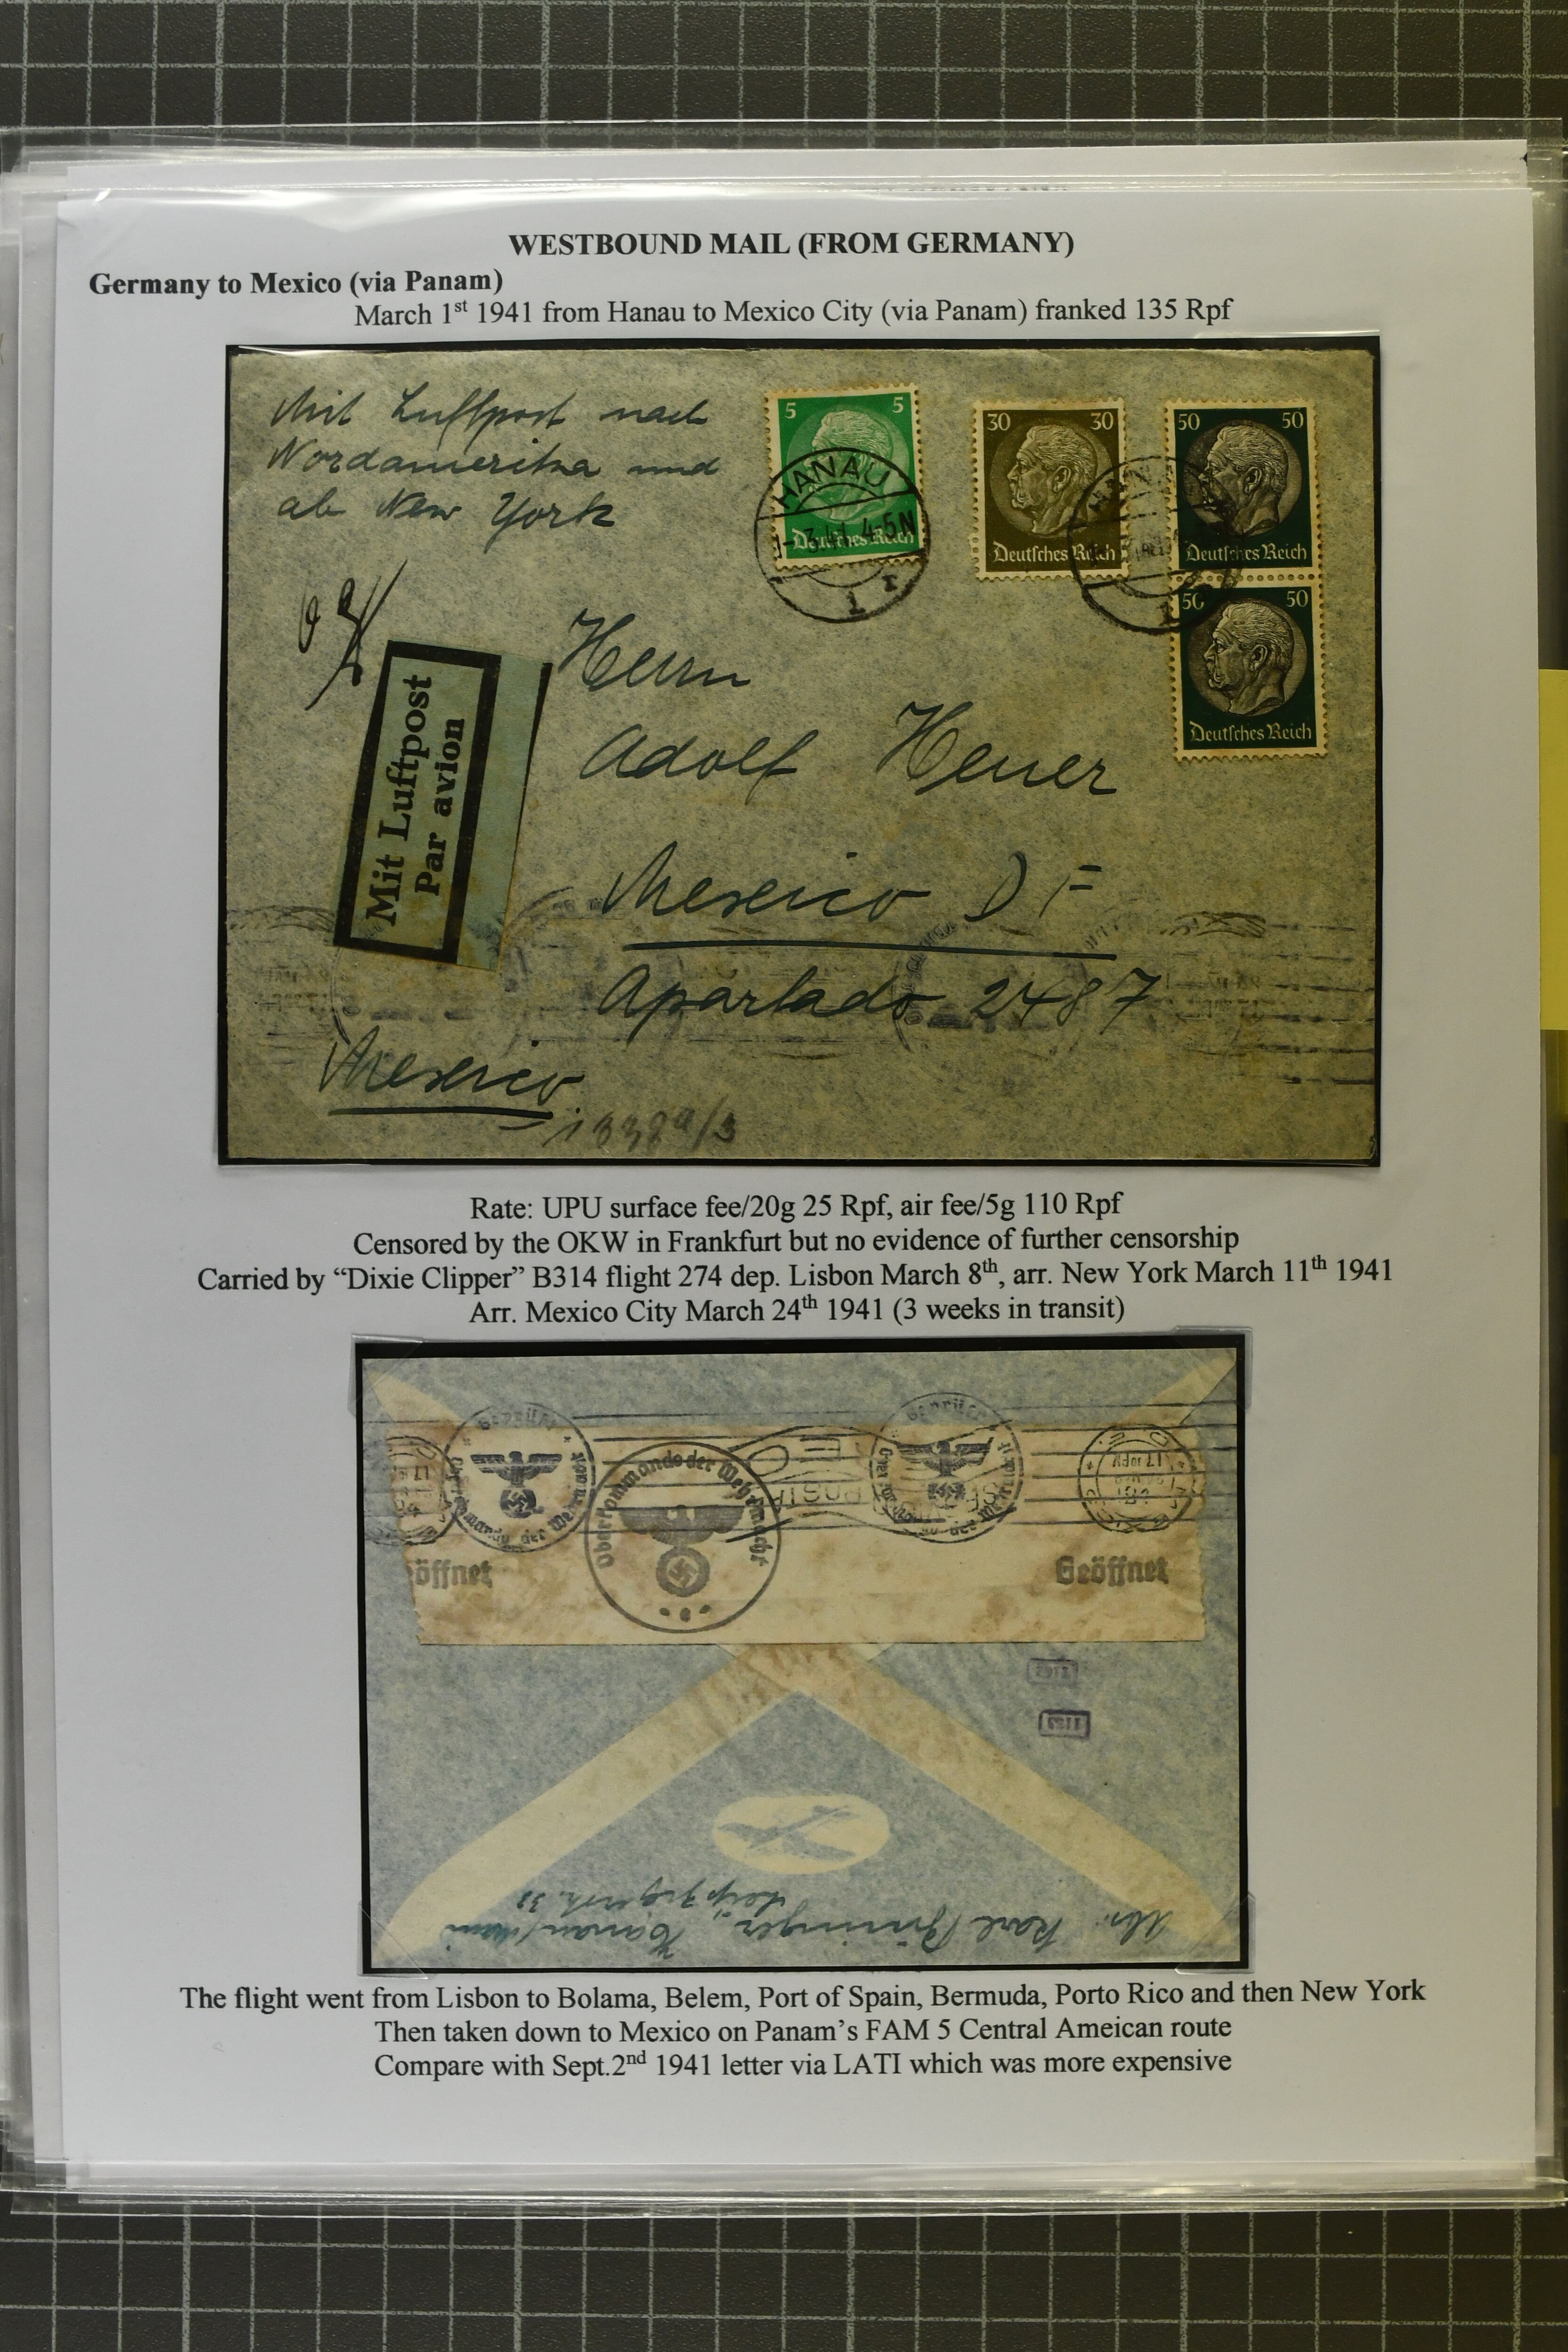 WESTBOUND MAIL (FROM GERMANY)
Germany to Mexico (via Panam)
March 1st 1941 from Hanau to Mexico City (via Panam) franked 135 Rpf
Mit Luftpost nach
Nordamerika und
ab New York
5 5
Deutsches Reich
30 30
Deutsches Reich
50 50
Deutsches Reich
50 50
Deutsches Reich
HANAU
1
Mit Luftpost
Par avion
Herrn
Adolf Heuer
Mexico D F
Apartado 2487
Mexico
Rate: UPU surface fee/20g 25 Rpf, air fee/5g 110 Rpf
Censored by the OKW in Frankfurt but no evidence of further censorship
Carried by “Dixie Clipper” B314 flight 274 dep. Lisbon March 8th, arr. New York March 11th 1941
Arr. Mexico City March 24th 1941 (3 weeks in transit)
Geprüft
Oberkommando der Wehrmacht
Oberkommando der Wehrmacht
e
Geprüft
Oberkommando der Wehrmacht
öffnet
Geöffnet
Abs. Karl Hanau/Main
Leipzigerstr. 32
The flight went from Lisbon to Bolama, Belem, Port of Spain, Bermuda, Porto Rico and then New York
Then taken down to Mexico on Panam’s FAM 5 Central Ameican route
Compare with Sept.2nd 1941 letter via LATI which was more expensive